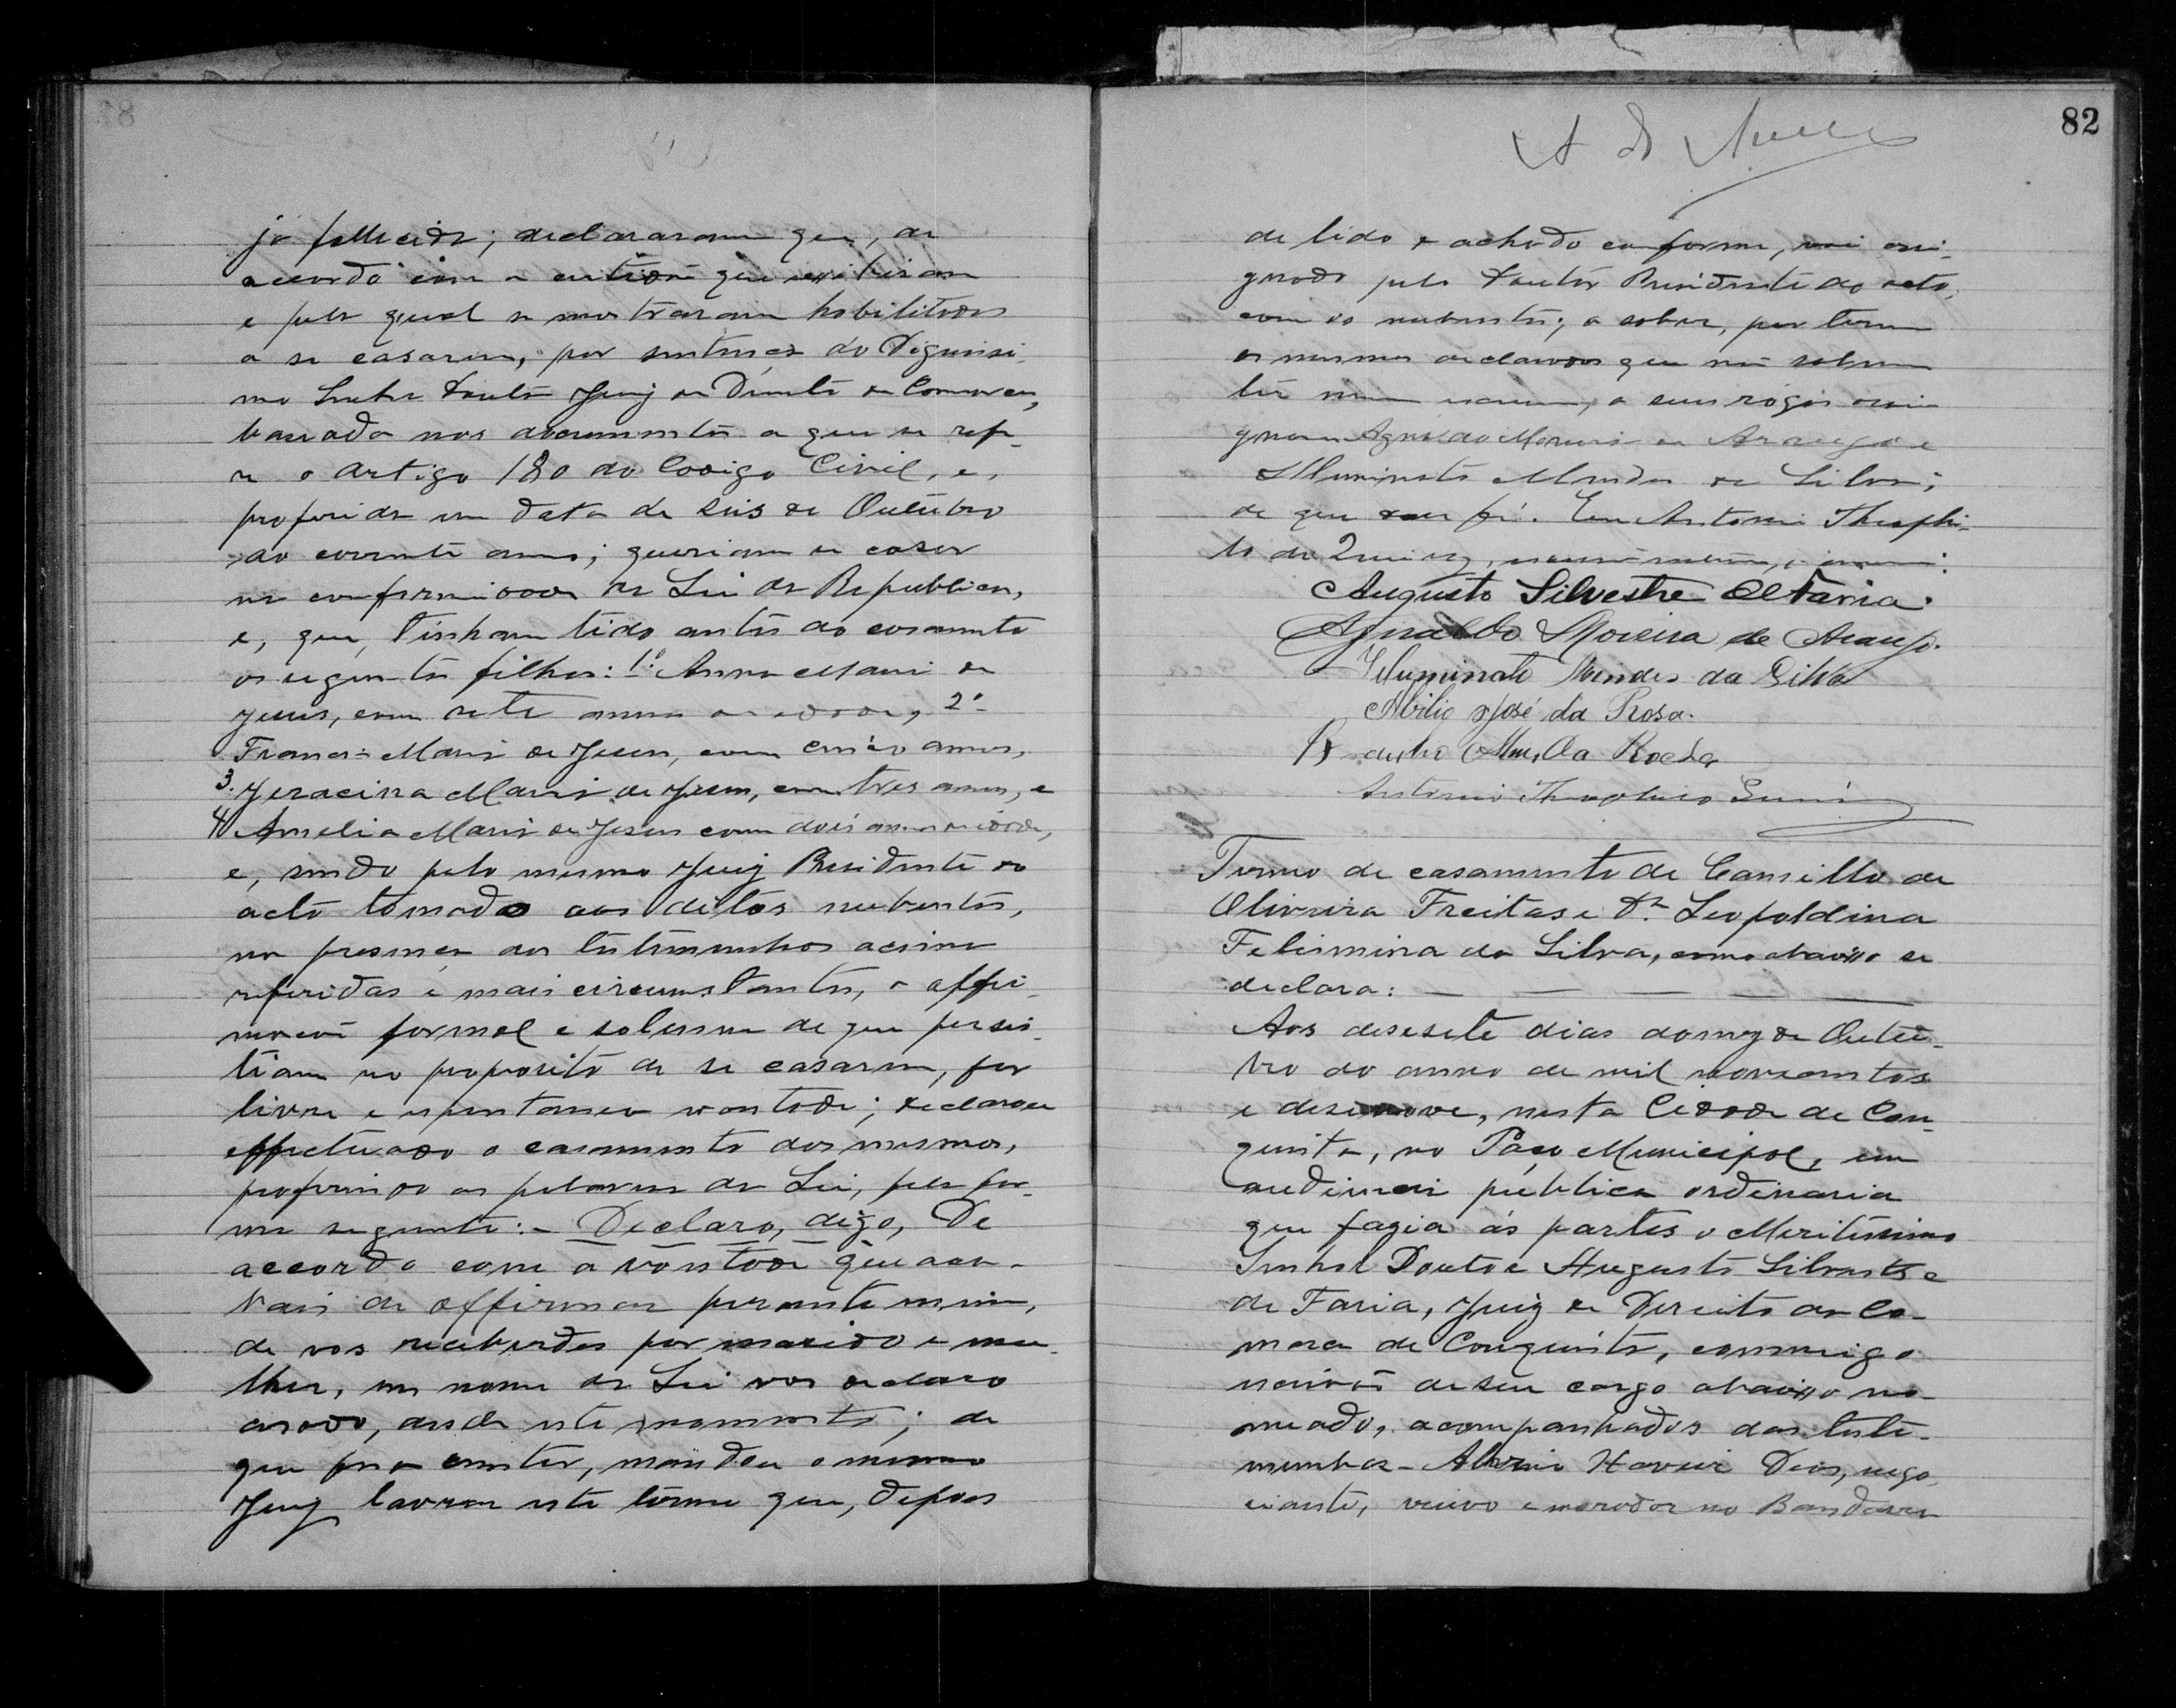 já fallecida; declararam que, de
accordo com a certidão que exhibiram
e pela qual se mostraram habilitados
a se casarem, por sentença do Dignissi-
mo Senhor Doutor Juiz de Direito da Comarca,
baseada nos documentos a que se refe-
re o artigo 180 do Codigo Civil, e,
proferida em data de seis de Outubro
do corrente anno; queriam se casar
na conformidade da Lei da Republica,
e, que, tinham tido antes do casamento
os seguintes filhos: 1º Anna Maria de
Jesus, com sete annos de idade, 2º
Maria de Jesus, com cinco annos,
3. Jeracina Maria de Jesus, com tres annos, e
4 Amelia Maria de Jesus com dois annos de idade,
e, sendo pelo mesmo Juiz Presidente do
acto tomada aos ditos nubentes,
na presença das testemunhas acima
referidas e mais circumstantes, a affir-
mação formal e solemne de que persis-
tiam no proposito de se casarem, por
livre e espontanea vontade; declarou
effectuado o casamento dos mesmos,
proferindo as palavras da Lei, pela for-
ma seguinte: - Declaro, digo, De
accordo com a vontade que aca-
bais de affirmar perante mim,
de vos receberdes por marido e mu-
lher, em nome da Lei vos declaro
casados, desde este momento; de
que para constar, mandou o mesmo
Juiz lavrar este termo que, depois
82
de lido e achado conforme, vai assi-
gnado pelo Doutor Presidente do acto,
com os nubentes; a saber, por terem
os mesmos declarado que não sabem
ler nem escrever, a seus rogos assi-
gnaram Agnaldo Moreira de Araujo e
Illuminato Mendes da Silva;
de que dou fé. Eu Antonio Theophi-
lo de
Augusto Silvestre de Faria.
Agnaldo Moreira de Araujo.
Illuminato Mendes da Silva
Abilio José da Rosa.
Rocha
Antonio Theophilo
Termo de casamento de Camillo de
Oliveira Freitas e Dª Leopoldina
Felismina da Silva, como abaixo se
declara: — — — —
Aos desesete dias do mez de Outu-
bro do anno de mil novecentos
e desenove, nesta Cidade de Con-
quista, no Paço Municipal, em
audiencia publica ordinaria
que fazia ás partes o Meritissimo
Senhor Doutor Augusto Silvestre
de Faria, Juiz de Direito da Co-
marca de Conquista, commigo
escrivão de seu cargo abaixo no-
meado, acompanhados das teste-
munhas - Xavier Dias, nego-
ciante, viuvo e morador no